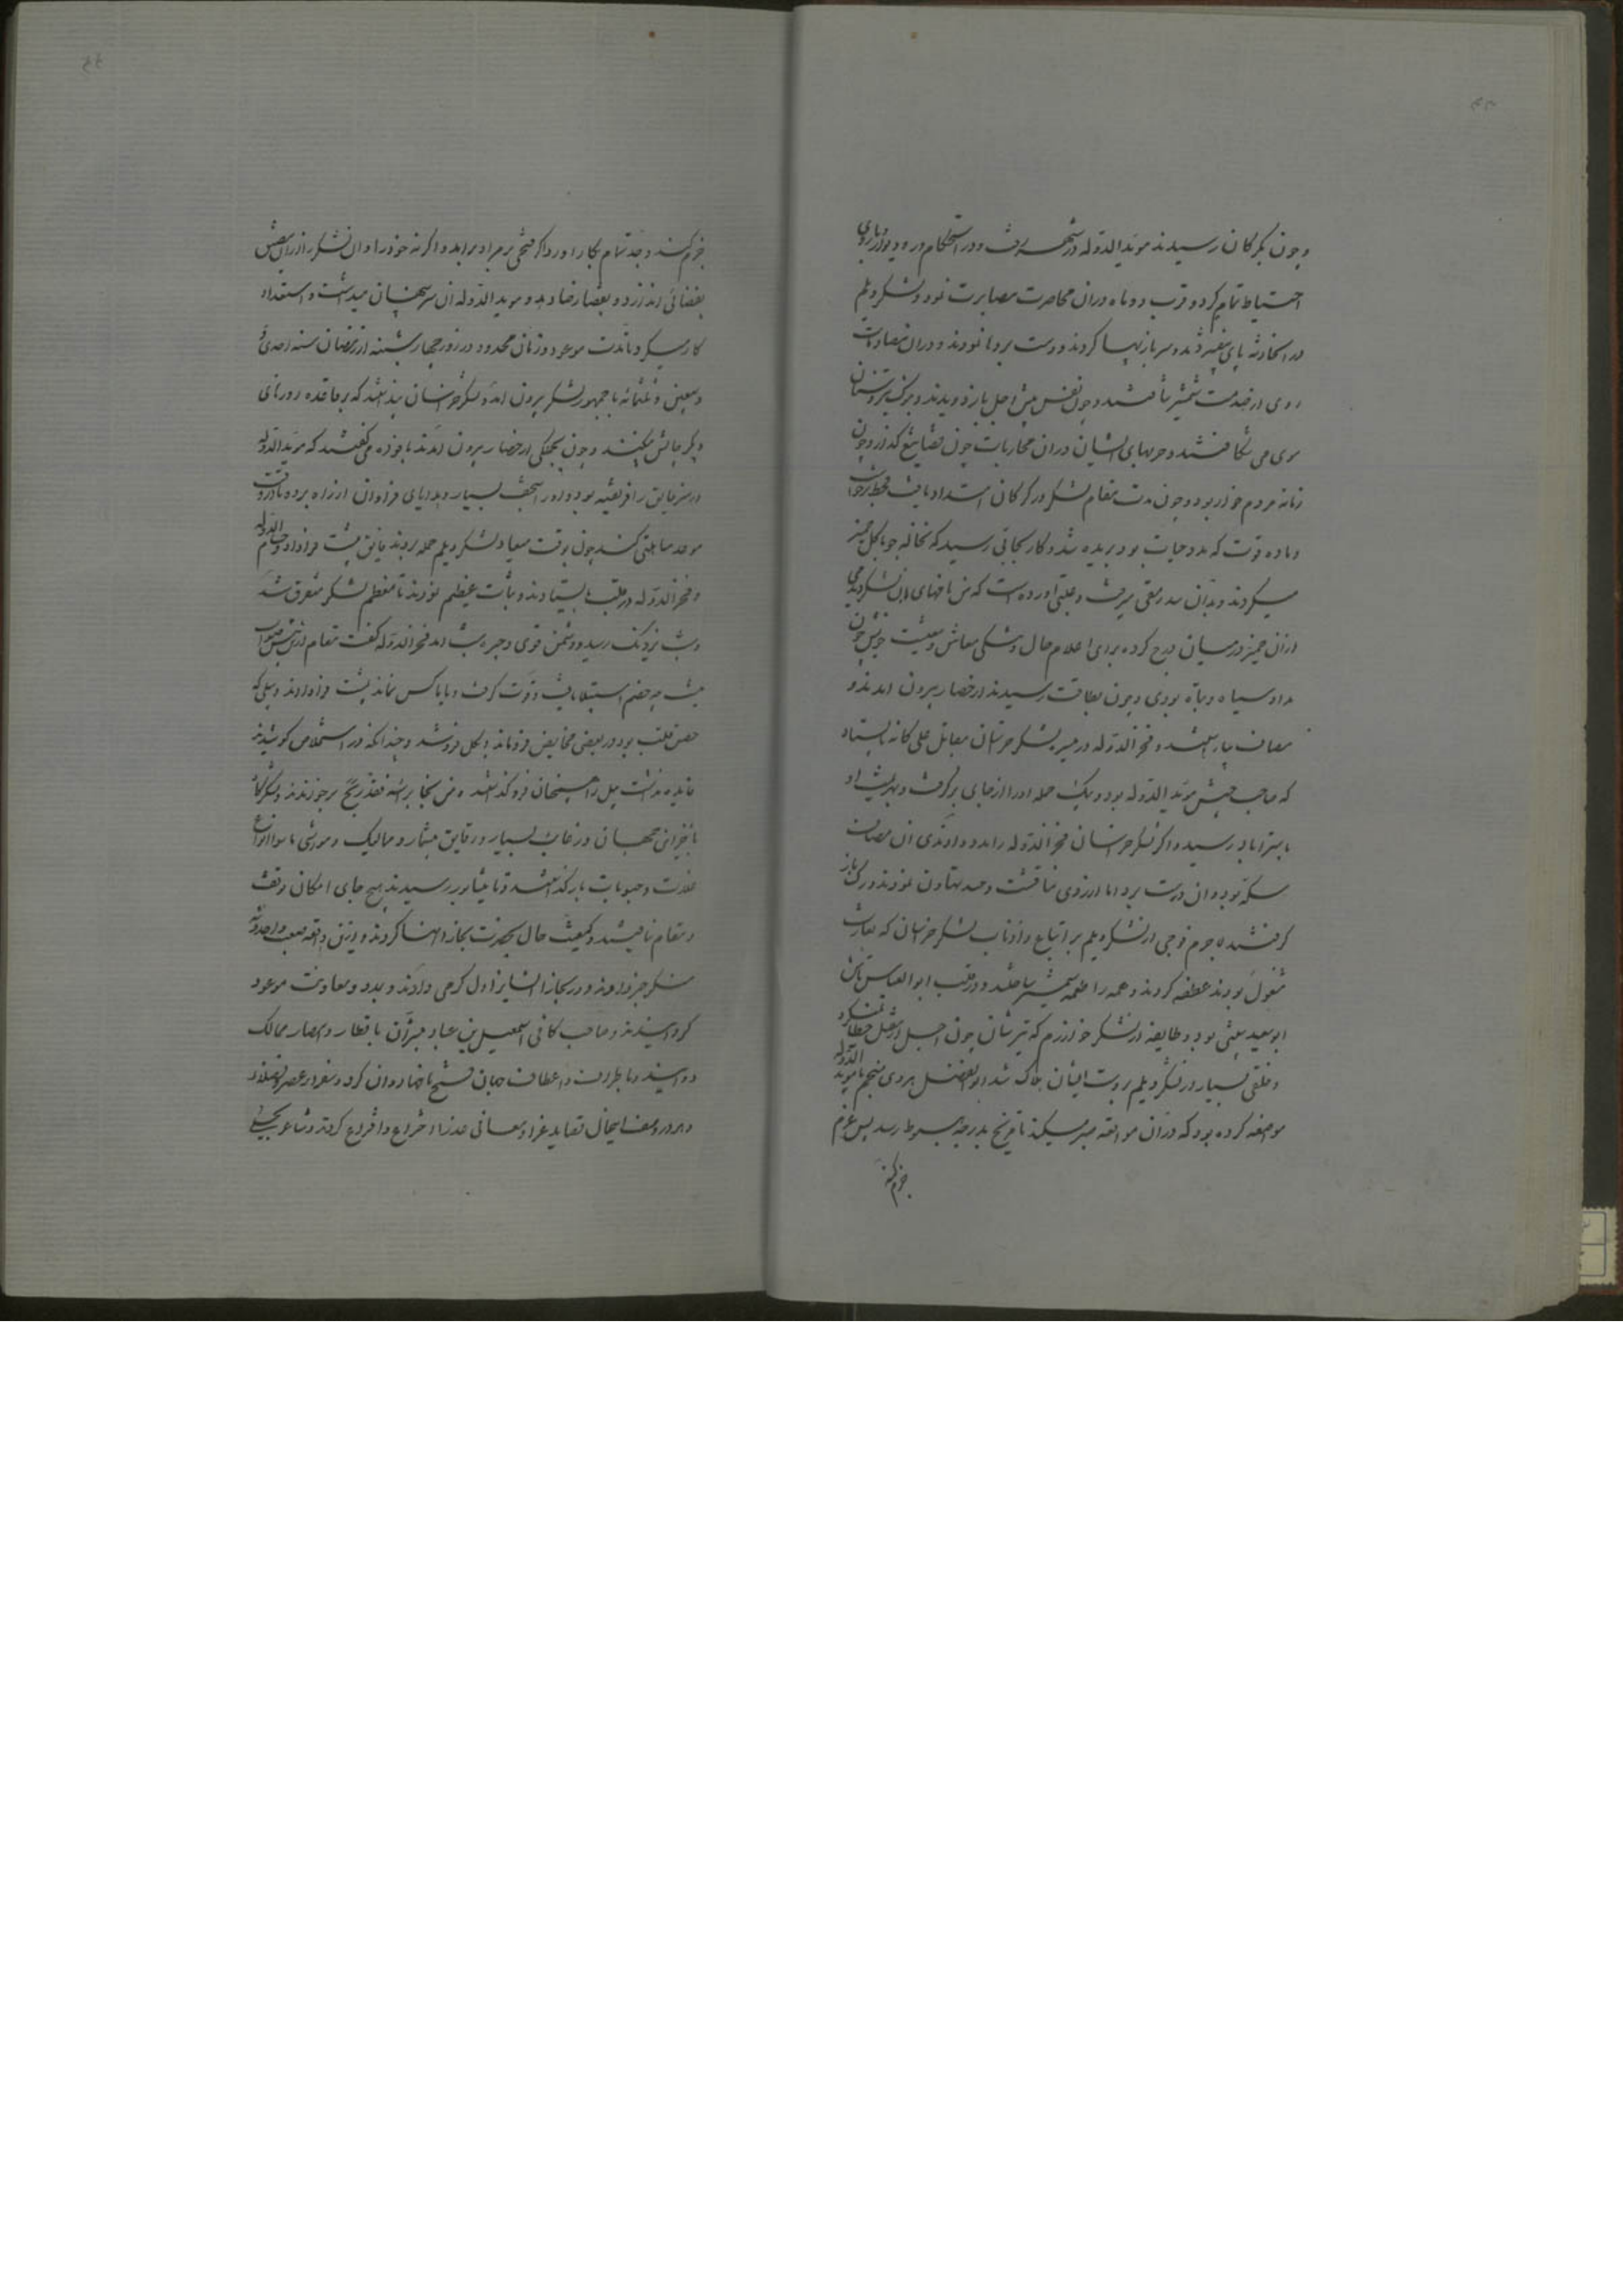 وچون بکرکان رسیدند موید الدوله در شهر رفت و در استحکام در و دیوار باروی
احتیاط تمام کرد و قرب دو ماه دران محاصرت مصابرت نمود و لشکر دیلم
در انحادثه پای بیفشردند و سربازیها کردند و دست بردها نمودند و دران مقامات
روی از خدمت شمشیر نتافتند و چون نفس پیش اجل باز دویدند و بنوک تیر و سنان
موی می شکافتند و حربهای ایشان دران محاربات چون قضا تیغ گذار و چون
زمانه مردم خوار بود و چون مدت مقام لشکر در کرکان امتداد یافت قحط برخاست
و ماده قوت که مدد حیات بود بریده شد و کار بجائی رسید که نخاله جو با کل خمیر
میکردند و بدان سد رمقی میرفت و عتبی آورده است که من نانهای لشکر دیدم
ازان خمیر در میان درج کرده برای اعلام حال و تنکی معاش و معیشت خویش چون
مداد سیاه و تباه بودی و چون بطاقت رسیدند از حصار بیرون امدند و
مصاف بیاراستند و فخر الدوله در میسره لشکر خراسان مقابل علی کامه بایستاد
که صاحب جیش موید الدوله بود و بیک حمله اورا از جای برکرفت و بهزیمت او
باستراباد رسید و اکر لشکر خراسان فخر الدوله را مدد دادندی ان مصاف
شکسته بود و ان دست برد اما از روی منافست و حسد تهاون نمودند و رکاب باز
کرفتند لاجرم فوجی از لشکر دیلم بر اتباع و اذناب لشکر خراسان که بغارت
مشغول بودند عطفه کردند و همه را طعمه شمشیر ساختند و در قلب ابو العباس تاش
ابو سعید شیبی بود و طایفه از لشکر خوارزم که تیرشان چون اجل خطا نمیکرد
و خلقی بسیار از لشکر دیلم بر دست ایشان هلاک شد و ابو الفضل هروی منجم با موید الدوله
مواضعه کرده بود که دران موافقه صبر میکند تا مریخ بدرجه هبوط رسد پس عزم
جزم کند
جزم کند و جد تمام بکار اورد اکر فتحی بر مراد براید و اکر نه خود را و ان لشکر را ازان مضیق
بفضائی اندازد و بقضا رضا دهد و موید الدوله ان سر پنهان میداشت و استعداد
کار میکرد تا مدت موعود و زمان محدود در روز چهار شنبه از رمضان سنه احدی و
سبعین و ثلثمایه با جمهور لشکر بیرون امد و لشکر خراسان پنداشتند که بر قاعده روزهای
دیکر چالش میکنند و چون بجملکی از حصار بیرون امدند با خود می کفتند که موید الدوله
در سر فایق را فریفته بود و اورا بتحف بسیار و هدایای فراوان از راه برده تا در وقت
موعد مساهلتی کند چون بوقت میعاد لشکر دیلم حمله بردند فایق پشت فرا داد و حسام الدوله
و فخر الدوله در قلب بایستادند و ثبات عظیم نمودند تا معظم لشکر متفرق شد
و شب نزدیک رسید و دشمن قوی و چیره شد اند فخر الدوله کفت مقام ازین بیش صواب
نیست چه خصم استیلا یافت و قوت کرفت و با ما کس نماند پشت فرا دادند و پیلی که
حصن قلب بود در بعضی مخایض فروماند و بکل فرو شد و چندانکه در استخلاص کوشیدند
فایده نداشت پیل را همچنان فرو کذاشتند و من نجا براسه فقد ربح برخواندند و لشکرکاه
با خزاین جهان و رغایب بسیار و رقایق بیشمار و ممالیک و مواشی با سوا انواع
غلات و حبوبات بازکذاشتند و تا نیشابور رسیدند هیچ جای امکان وقفت
و مقام نیافتند و کیفیت حال بحضرت بخارا انها کردند و ازین واقعه صعب و احدوثه
منکر خبر دادند و در بخارا ایشانرا دل کرمی دادند و بمدد و معاونت موعود
کردانیدند و صاحب کافی اسمعیل بن عباد مبشران باقطار و امصار ممالک
دوانید و باطراف و اعطاف جهان فتح نامها روان کرد و شعراء عصر و فضلاء
دهر در وصف اینحال قصاید غرا و معانی عذرا اختراع و اقتراع کردند و شاعر بجیلی